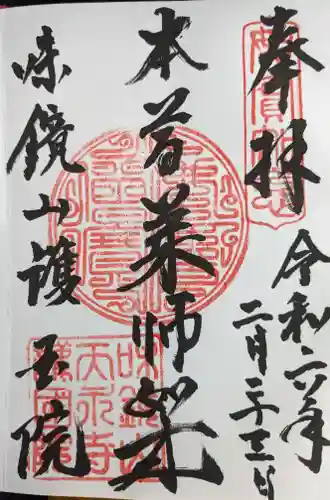 奉拝
令和六年
二月二十三日
本尊薬師如来
味鏡山護国院
味鏡山
天永寺
護國院